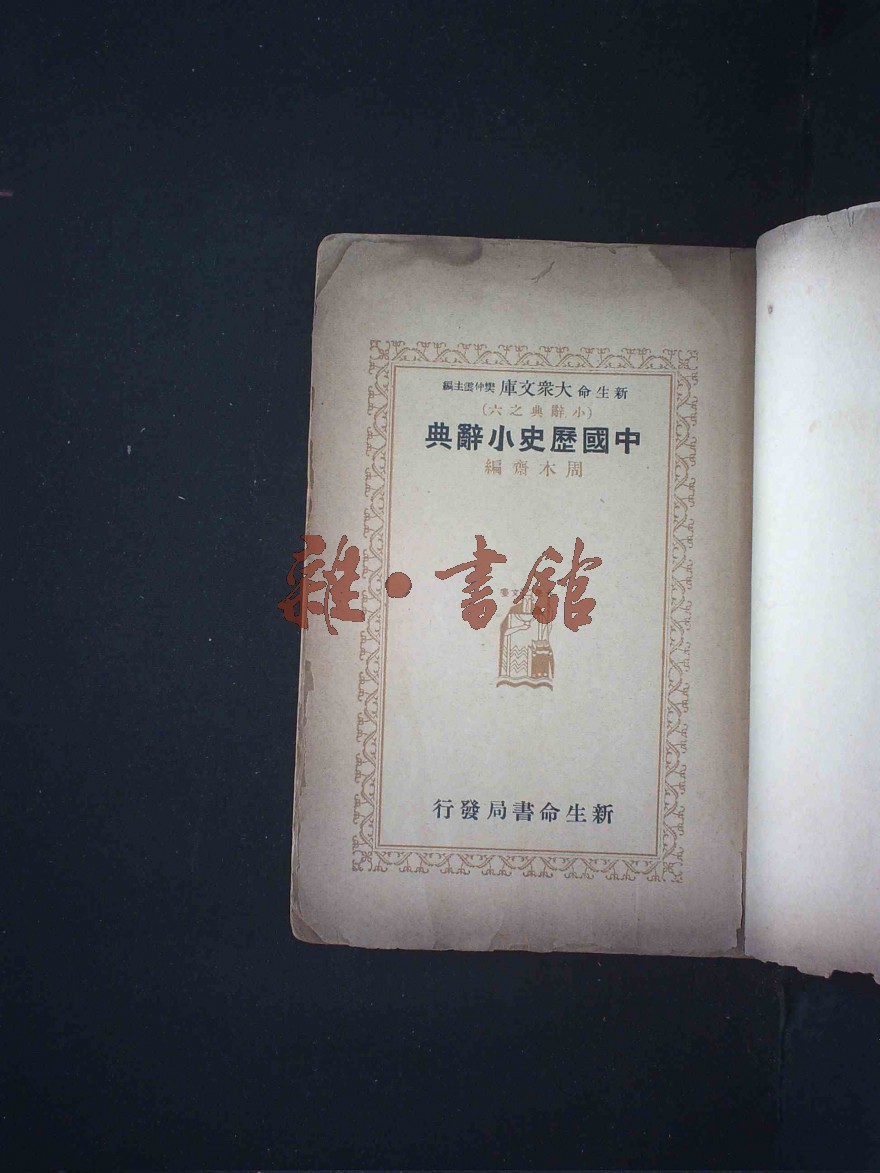 新生命大眾文庫 樊仲雲主編
(小辭典之六)
中國歷史小辭典
周木齋編
雜·書館
新生命書局發行